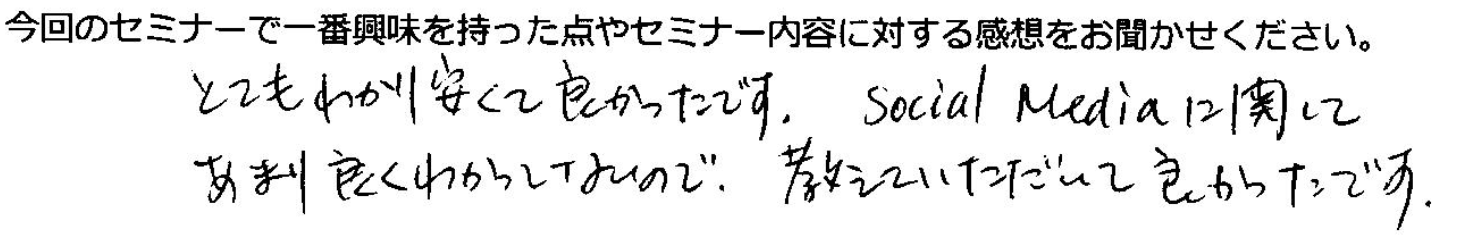 今回のセミナーで一番興味を持った点やセミナー内容に対する感想をお聞かせください。
とてもわかり安くて良かったです. Social Mediaに関して
あまり良くわからしてないので. 教えていただいて良かったです.